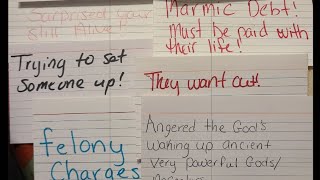 Surprised your
Still Alive!
Marmic Debt!
Must be paid with
their life!
Trying to set
Someone up!
They want out!
felony
Charges
Angered the God's
waking up ancient
Very powerful Gods/